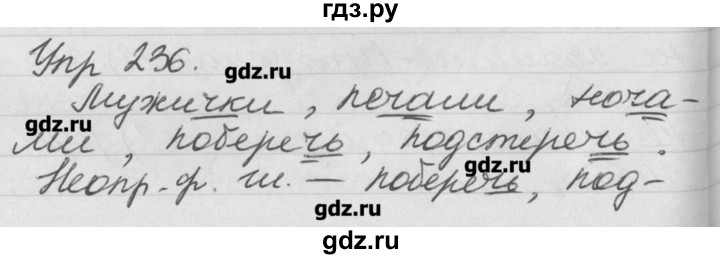 гдз.ру
Упр 236.
gdz.ru
Мужички, печали, ноча-
gdz.ru
gdz.ru
ми, поберечь, подстеречь.
Неопр. ф. гл. — поберечь, под-
gdz.ru
gdz.ru